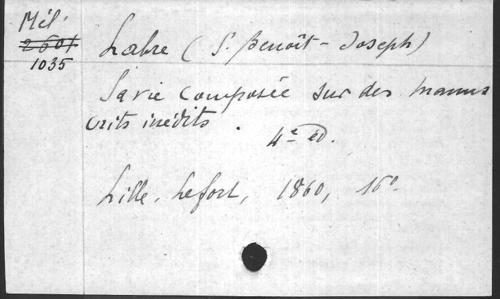 Mél.
2601
1035
Labre (S. Benoît-Joseph)
Sa vie composée sur des manus
crits inédits.
4e éd.
Lille, Lefort, 1860, 16°.